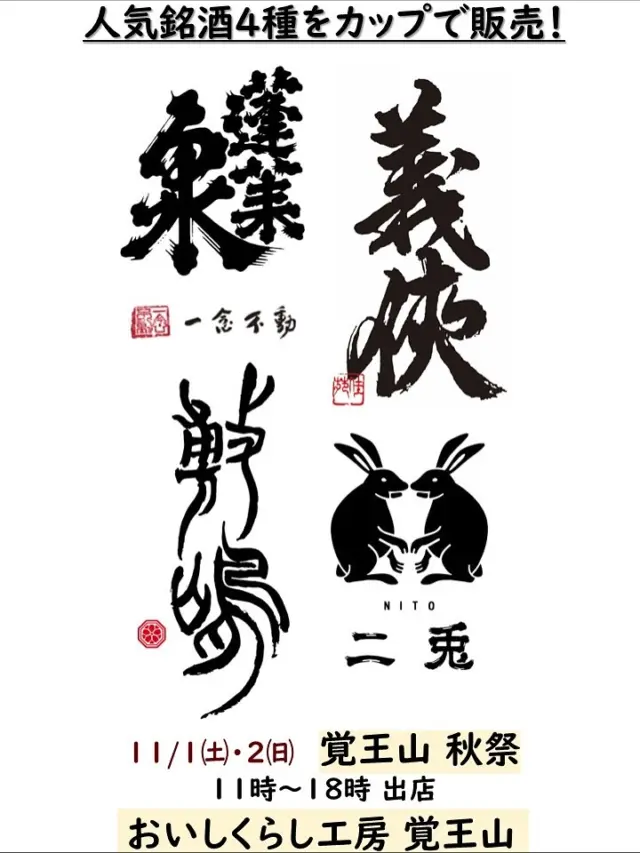 人気銘酒4種をカップで販売!
蓬莱泉
一念不動
義侠
敷嶋
NITO
二兎
11/1㈯・2㈰ 覚王山 秋祭
11時~18時 出店
おいしくらし工房 覚王山